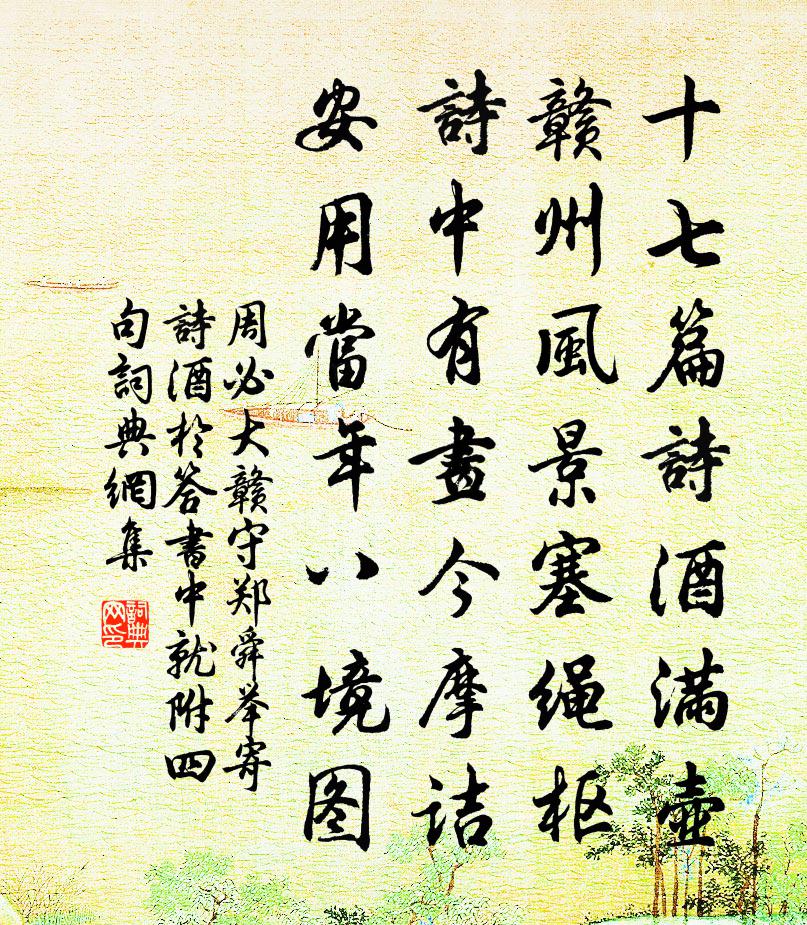 十七篇詩酒滿壺
赣州風景塞绳枢
詩中有畫今摩诘
安用當年八境图
周必大赣守郑舜举寄
詩酒於答書中就附四
句詞典網集
詞典网印